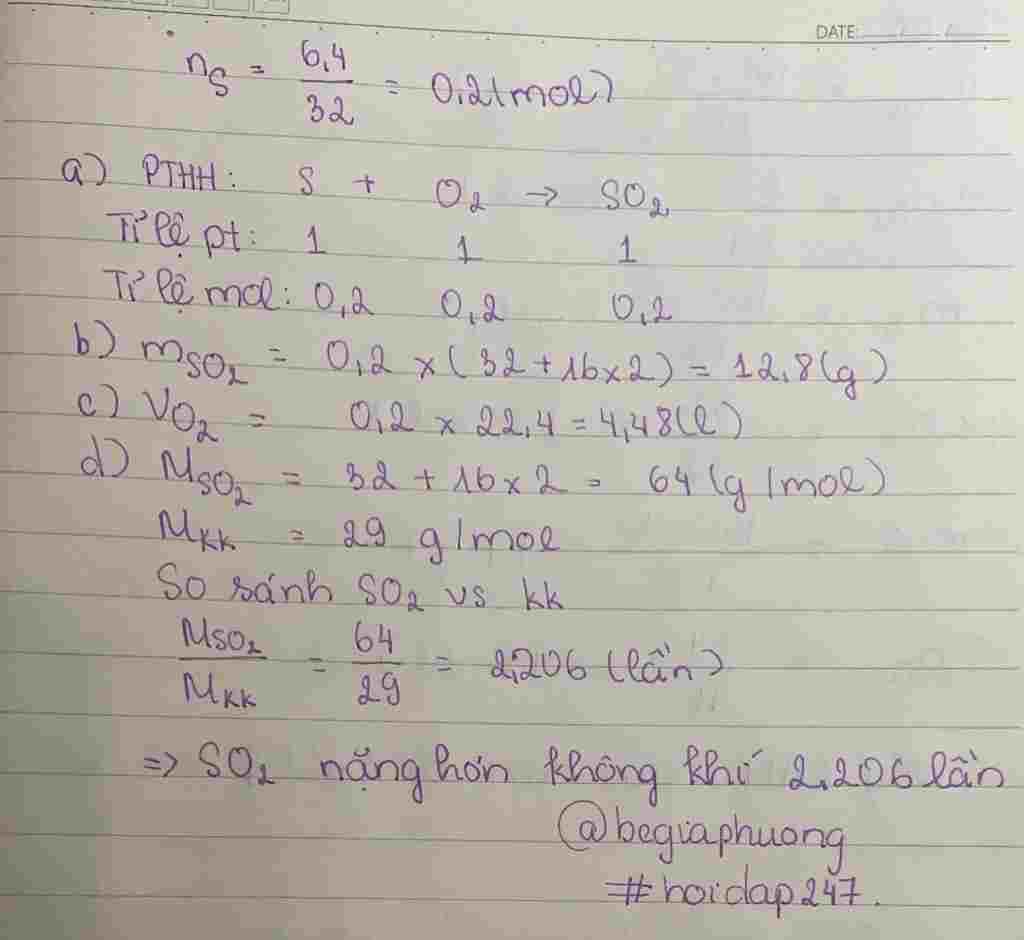 DATE:
nS = 6,4/32 = 0,2(mol)
a) PTHH: S + O2 → SO2
Tỉ lệ pt: 1 1 1
Tỉ lệ mol: 0,2 0,2 0,2
b) mSO2 = 0,2 × (32 + 16×2) = 12,8(g)
c) VO2 = 0,2 × 22,4 = 4,48(l)
d) MSO2 = 32 + 16×2 = 64 (g/mol)
MKK = 29 g/mol
So sánh SO2 vs kk
MSO2/MKK = 64/29 = 2,206 (lần)
=> SO2 nặng hơn không khí 2,206 lần
@begiaphuong
#hoidap247.